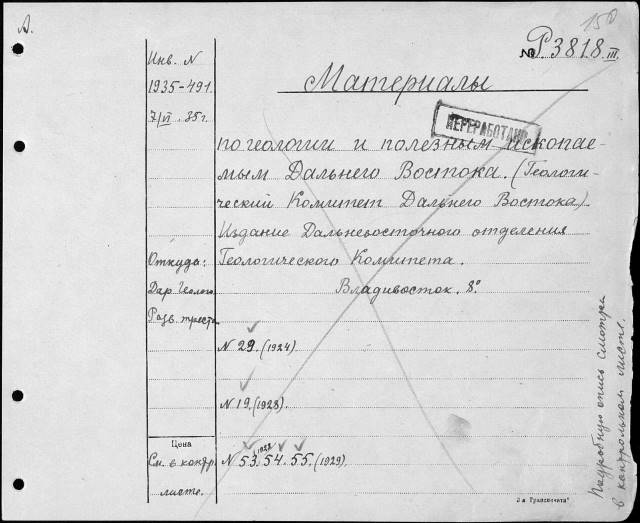 А.
150
№ Р.3818.III.
Инв. N
1935-491.
7/VI .35 г.
Материалы
ПЕРЕРАБОТАНО
по геологии и полезным ископае-
мым Дальнего Востока. (Геологи-
ческий Комитет Дальнего Востока).
Издание Дальневосточного отделения
Геологического Комитета.
Владивосток. 8°.
Откуда:
Дар Геолого
Разв. треста
N 29. (1924).
N 19. (1928).
1928
N 53. 54. 55. (1929).
Цена
См. в контр.
листе.
Подробную опись смотри
в контрольном листе.